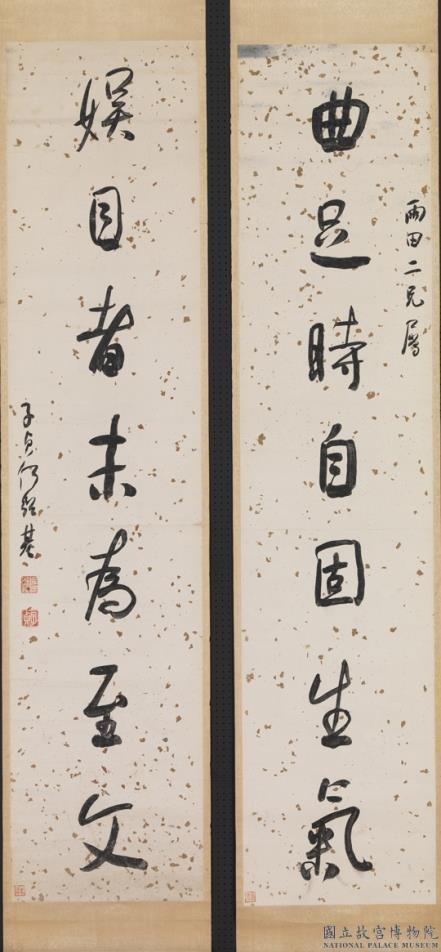 雨田二兄屬
曲足時自固生氣
娛目者未為至文
子貞何紹基
國立故宮博物院
NATIONAL PALACE MUSEUM